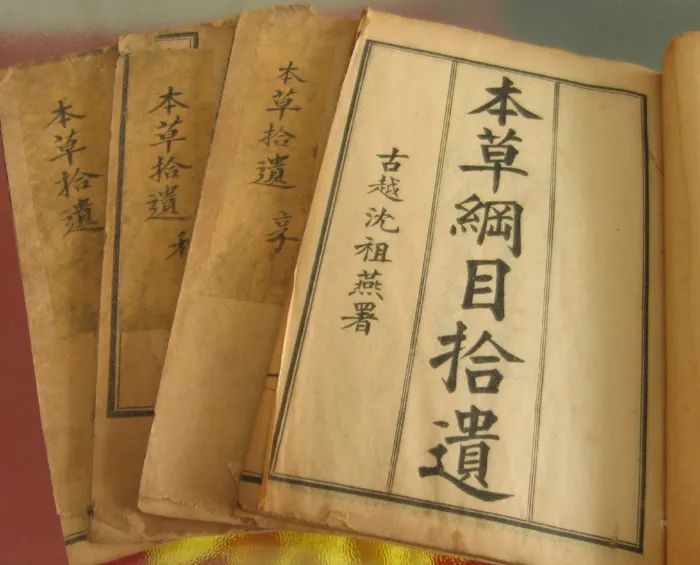 本草綱目拾遺
古越沈祖燕署
本草拾遺 亨
本草拾遺
本草拾遺